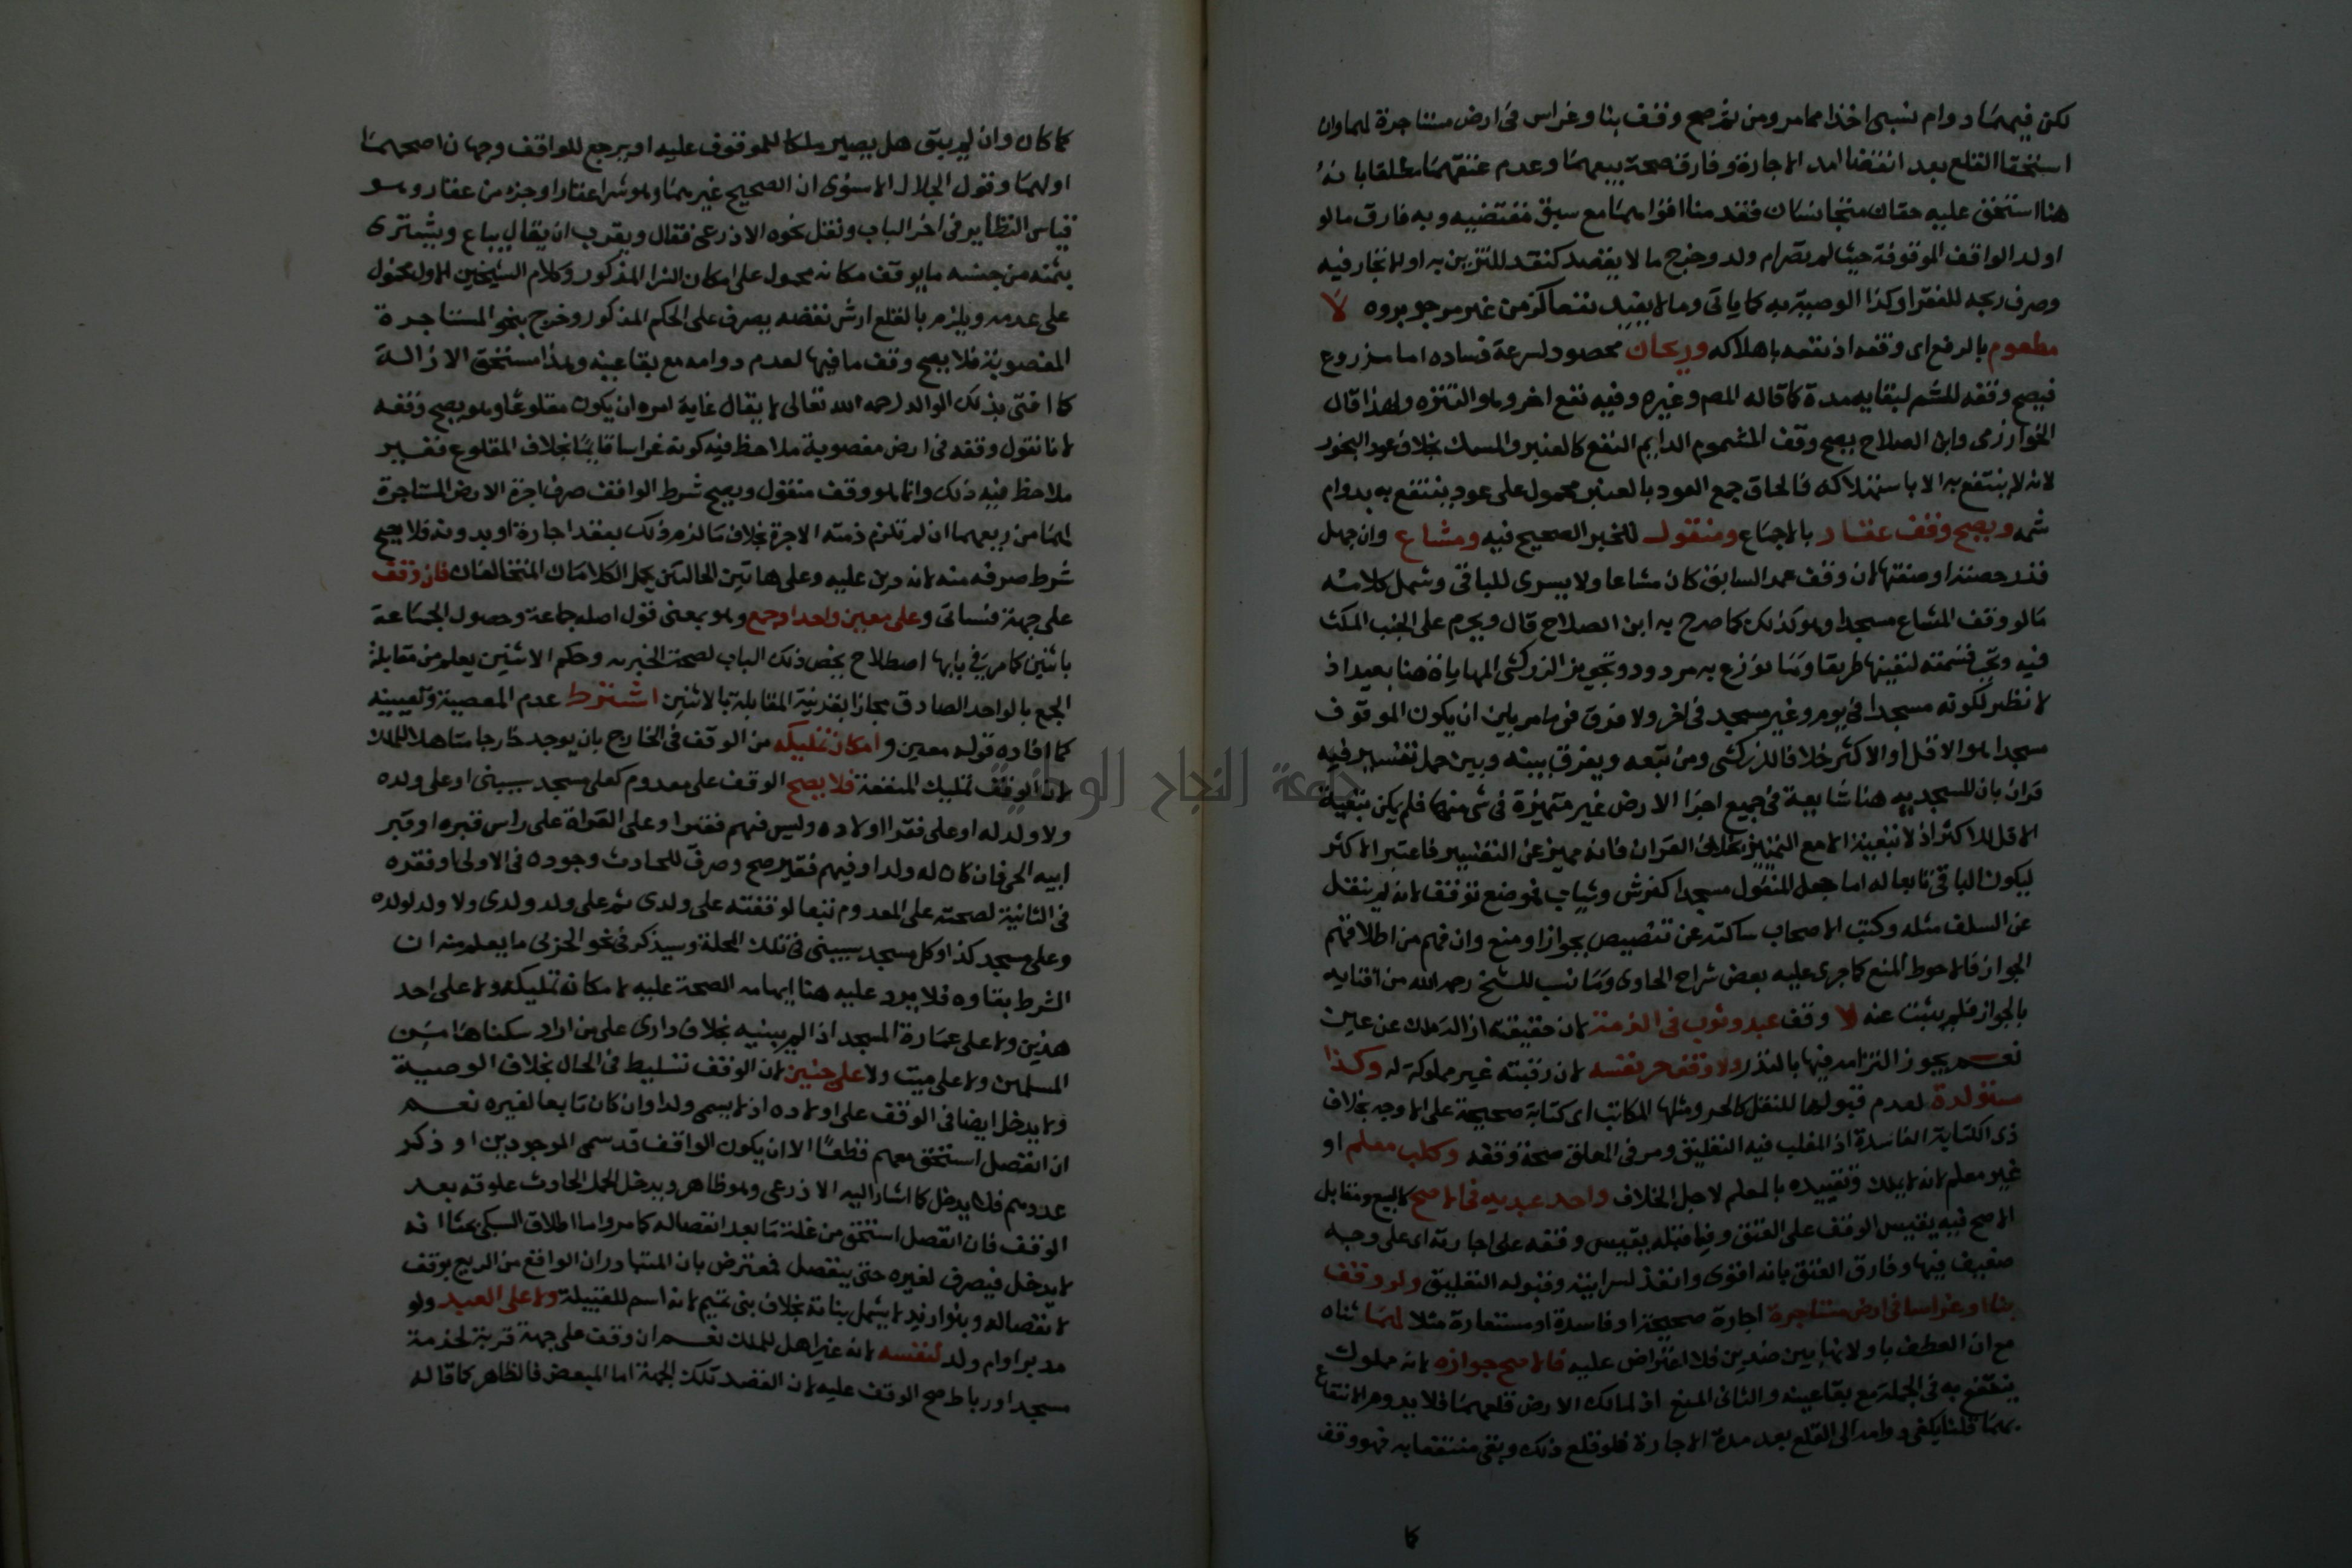 لكن فيهما دوام نسبى اخذا مما مر ومن ثم صح وقف بنا وغراس فى ارض مستاجرة لهما وان
استحقا القلع بعد انقضا امد الاجارة وفارق صحة بيعهما وعدم عتقهما مطلقا بانه
هنا استحق عليه حقان متجانسان فقدمنا اقواهما مع سبق مقتضيه وبه فارق مالو
اولد الواقف الموقوفة حيث لم تصر ام ولد وخرج ما لا يقصد كنقد للتزين به او الاتجار فيه
وصرف ربحه للفقرا وكذا الوصية به كما ياتى وما لا يفيد نفعا كزمن غير مرجو برؤه لا
مطعوم بالرفع اى وقفه اذ نفعه باهلاكه وريحان محصود لسرعة فساده اما مزروع
فيصح وقفه للشم لبقايه مدة كما قاله المص وغيره وفيه نفع اخر وهو التنزه ولهذا قال
الخوارزمى وابن الصلاح يصح وقف المشموم الدايم النفع كالعنبر والمسك بخلاف عود البخور
لانه لا ينتفع به الا باستهلاكه فالحاق جمع العود بالعنبر محمول على عود ينتفع به بدوام
شمه ويصح وقف عقار بالاجماع ومنقول للخبر الصحيح فيه ومشاع وان جهل
قدر حصته او صفتها لان وقف عمر السابق كان مشاعا ولا يسرى للباقى وشمل كلامه
مالو وقف المشاع مسجدا وهو كذلك كما صرح به ابن الصلاح قال ويحرم على الجنب المكث
فيه وتجب قسمته لتعينها طريقا وما نوزع به مردود وتجويز الزركشى المهاياة هنا بعيد اذ
لا نظير لكونه مسجدا فى يوم وغير مسجد فى اخر ولا فرق فيما مر بين ان يكون الموقوف
مسجدا هو الاقل او الاكثر خلافا للزركشى ومن تبعه ويفرق بينه وبين حمل تفسير فيه
قران بان المسجديه هنا شايعة فى جميع اجزا الارض غير متميزة فى شى منها فلم يكن تبعية
الاقل للاكثر اذ لا تبعية الا مع التمييز بخلاف القران فانه مميز عن التفسير فاعتبر الاكثر
ليكون الباقى تابعا له اما جعل المنقول مسجدا كفرش وثياب فموضع توقف لانه لم ينقل
عن السلف مثله وكتب الاصحاب ساكتة عن تنصيص بجواز او منع وان فهم من اطلاقهم
الجواز فالاحوط المنع كما جرى عليه بعض شراح الحاوى وما نسب للشيخ رحمه الله من افتايه
بالجواز فلم يثبت عنه لا وقف عبد وثوب فى الذمة لان حقيقته ازالة ملك عن عين
نعم يجوز التزامه فيها بالنذر ولا وقف حر نفسه لان رقبته غير مملوكة له وكذا
مستولدة لعدم قبولها للنقل كالحر ومثلها المكاتب اى كتابة صحيحة على الاوجه بخلاف
ذى الكتابة الفاسدة اذ المغلب فيه التعليق ومر فى المعلق صحة وقفه وكلب معلم او
غير معلم لانه لا يملك وتقييده بالمعلم لاجل الخلاف واحد عبديه فى الاصح كالبيع ومقابل
الاصح فيه يقيس الوقف على العتق وفيما قبله يقيس وقفه على اجارته اى على وجه
ضعيف فيها وفارق العتق بانه اقوى وانفذ لسرايته وقبوله التعليق ولو وقف
بنا او غراسا فى ارض مستاجرة اجارة صحيحة او فاسدة او مستعارة مثلا لهما ثناه
مع ان العطف باو لانها بين ضدين فلا اعتراض عليه فالاصح جوازه لانه مملوك
ينتفع به فى الجملة مع بقا عينه والثانى المنع اذ لمالك الارض قلعهما فلا يدوم الانتفاع
بهما قلنا يكفى دوامه الى القلع بعد مدة الاجارة فلو قلع ذلك وبقى منتفعا به فهو وقف
كما
كما كان وان لم يبق هل يصير ملكا للموقوف عليه او يرجع للواقف وجهان اصحهما
اولهما وقول الجلال الاسنوى ان الصحيح غيرهما وهو شرا عقار او جزء من عقار وهو
قياس النظاير فى اخر الباب ونقل نحوه الاذرعى فقال ويقرب ان يقال يباع ويشترى
بثمنه من جنسه ما يوقف مكانه محمول على امكان الشرا المذكور وكلام الشيخين الاول محمول
على عدمه ويلزم بالقلع ارش نقصه يصرف على الحكم المذكور وخرج بنحو المستاجرة
المغصوبة فلا يصح وقف ما فيها لعدم دوامه مع بقا عينه وهذا مستحق الازالة
كما افتى بذلك الوالد رحمه الله تعالى لا يقال غاية امره ان يكون مقلوعا وهو يصح وقفه
لانا نقول وقفه فى ارض مغصوبة ملاحظ فيه كونه غراسا قايما بخلاف المقلوع فغير
ملاحظ فيه ذلك وانما هو وقف منقول ويصح شرط الواقف صرف اجرة الارض المستاجرة
لهما من ريعهما ان لم تلزم ذمته الاجرة بخلاف ما لزم ذلك بعقد اجارة او بدونه فلا يصح
شرط صرفه منه لانه دين عليه وعلى هاتين الحالتين يحمل الكلامان المتخالفان فان وقف
على جهة فسياتى وعلى معين واحد او جمع وهو بمعنى قول اصله جماعة وحصول الجماعة
باثنين كما مر فى بابها اصطلاح يخص ذلك الباب لصحة الخبر به وحكم الاثنين يعلم من مقابلة
الجمع بالواحد الصادق مجازا بقرينة المقابلة بالاثنين اشترط عدم المعصية وتعيينه
كما افاده قوله معين وامكان تمليكه من الوقف فى الخارج بان يوجد خارجا متاهلا للملك
لان الوقف تمليك المنفعة فلا يصح الوقف على معدوم كعلى مسجد سيبنى او على ولده
ولا ولد له او على فقرا اولاده وليس فيهم فقير او على القراة على راس قبره او قبر
ابيه الحى فان كان له ولد او فيهم فقير صح وصرف للحادث وجوده فى الاولى او فقره
فى الثانية لصحته على المعدوم تبعا لوقفته على ولدى ثم على ولد ولدى ولا ولد لولده
وعلى مسجد كذا وكل مسجد سيبنى فى تلك المحلة وسيذكر فى نحو الحربى ما يعلم منه ان
الشرط بقاوه فلا يرد عليه هنا ايهامه الصحة عليه لامكان تمليكه ولا على احد
هذين ولا على عمارة المسجد اذا لم يبينه بخلاف دارى على من اراد سكناها من
المسلمين ولا على ميت ولا على جنين لان الوقف تسليط فى الحال بخلاف الوصية
ولا يدخل ايضا فى الوقف على اولاده اذ لا يسمى ولدا وان كان تابعا لغيره نعم
ان انفصل استحق معهم قطعا الا ان يكون الواقف قد سمى الموجودين او ذكر
عددهم فلا يدخل كما اشار اليه الاذرعى وهو ظاهر ويدخل الحمل الحادث علوقه بعد
الوقف فان انفصل استحق من غلة ما بعد انفصاله كما مر واما اطلاق السبكى بحثا انه
لا يدخل فيصرف لغيره حتى ينفصل فمعترض بان المتبادر ان الواقع من الريع يوقف
لانفصاله وبنو زيد لا يشمل بناته بخلاف بنى تميم لانه اسم للقبيلة ولا على العبد ولو
مدبرا وام ولد لنفسه لانه غير اهل للملك نعم ان وقف على جهة قربة لخدمة
مسجد او رباط صح الوقف عليه لان القصد تلك الجهة اما المبعض فالظاهر كما قاله
جامعة النجاح الوطنية